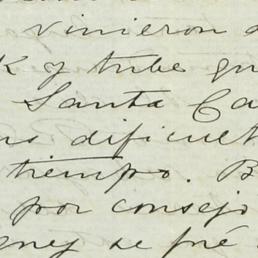 vinieron
K y tube
Santa Ca
dificult
tiempo. B
por consejo
se fué